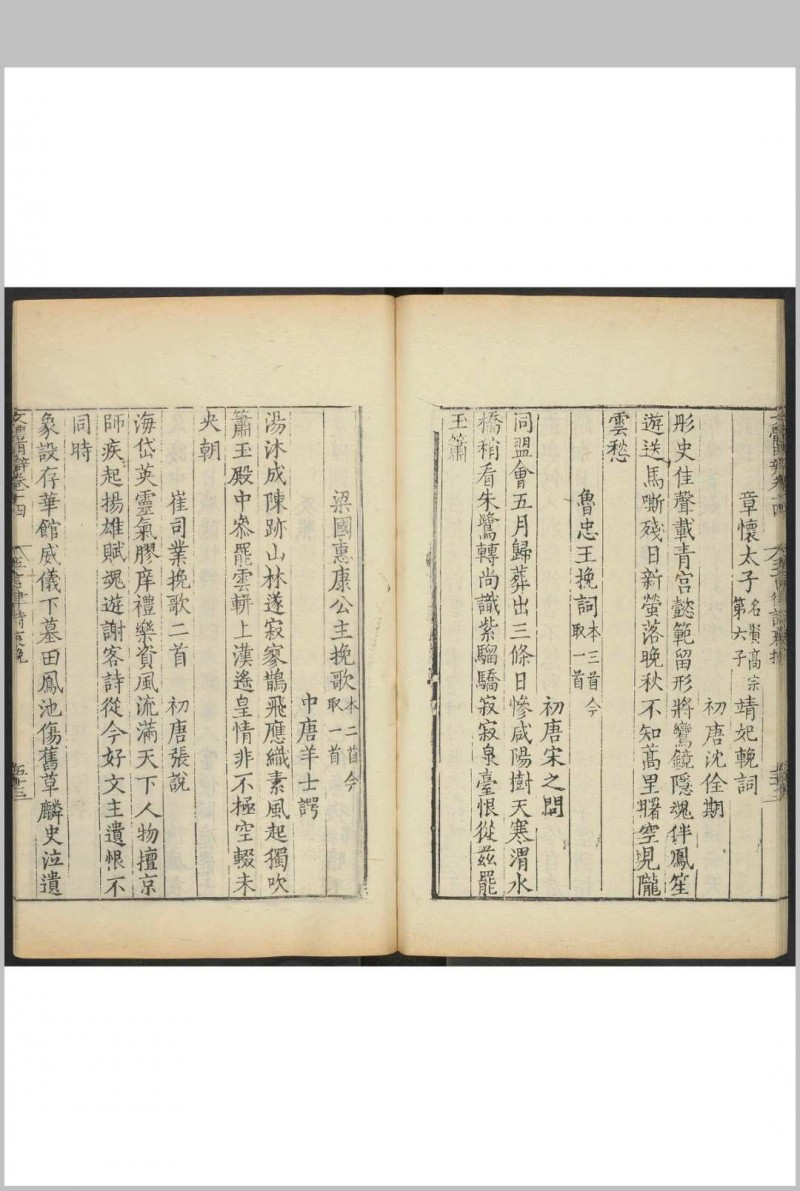 章懷太子名賢高宗第六子靖妃輓詞
初唐沈佺期
彤史佳聲載青宮懿範留形將鸞鏡隱魂伴鳳笙
遊送馬嘶殘日新螢落晚秋不知蒿里曙空見隴
雲愁
魯忠王挽詞本三首今取一首
初唐宋之問
同盟會五月歸葬出三條日慘咸陽樹天寒渭水
橋稍看朱鷺轉尚識紫騮驕寂寂泉臺恨從茲罷
玉簫
梁國惠康公主挽歌本二首今取一首
中唐羊士諤
湯沐成陳跡山林遂寂寥鵲飛應織素風起獨吹
簫玉殿中參罷雲軿上漢遙皇情非不極空輟未
央朝
崔司業挽歌二首　初唐張說
海岱英靈氣膠庠禮樂資風流滿天下人物擅京
師疾起揚雄賦魂遊謝客詩從今好文主遺恨不
同時
象設存華館威儀下墓田鳳池傷舊草麟史泣遺
卷十四
五言律詩哀挽
五十三